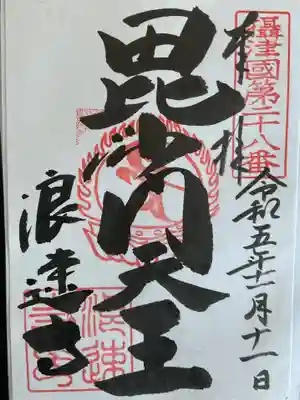 攝津國第二十八番
奉拝
令和五年十二月十一日
毘沙門天王
浪速寺